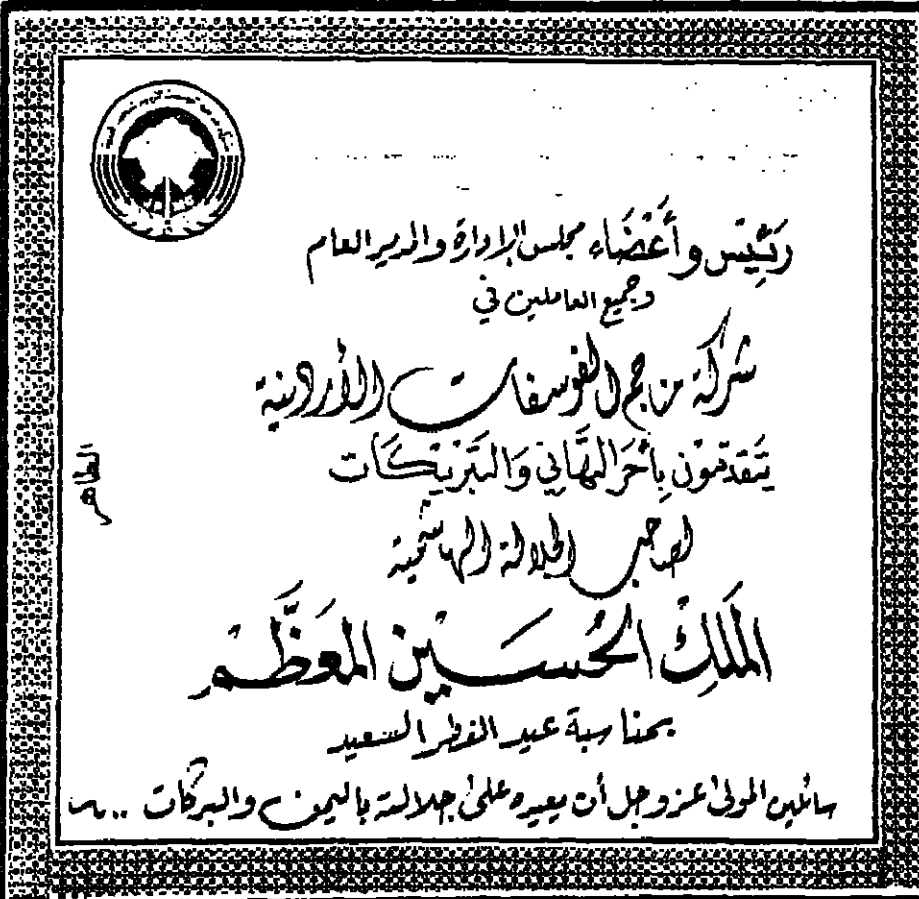 رئيس وأعضاء مجلس الإدارة والمدير العام
وجميع العاملين في
شركة مناجم الفوسفات الأردنية
يتقدمون بأحر التهاني والتبريكات
لصاحب الجلالة الهاشمية
الملك الحسين المعظم
بمناسبة عيد الفطر السعيد
سائلين المولى عز وجل أن يعيده على جلالته باليمن والبركات ..